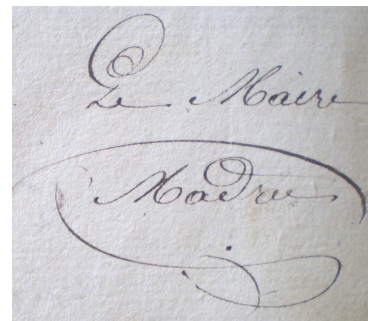 Le Maire
Madrue